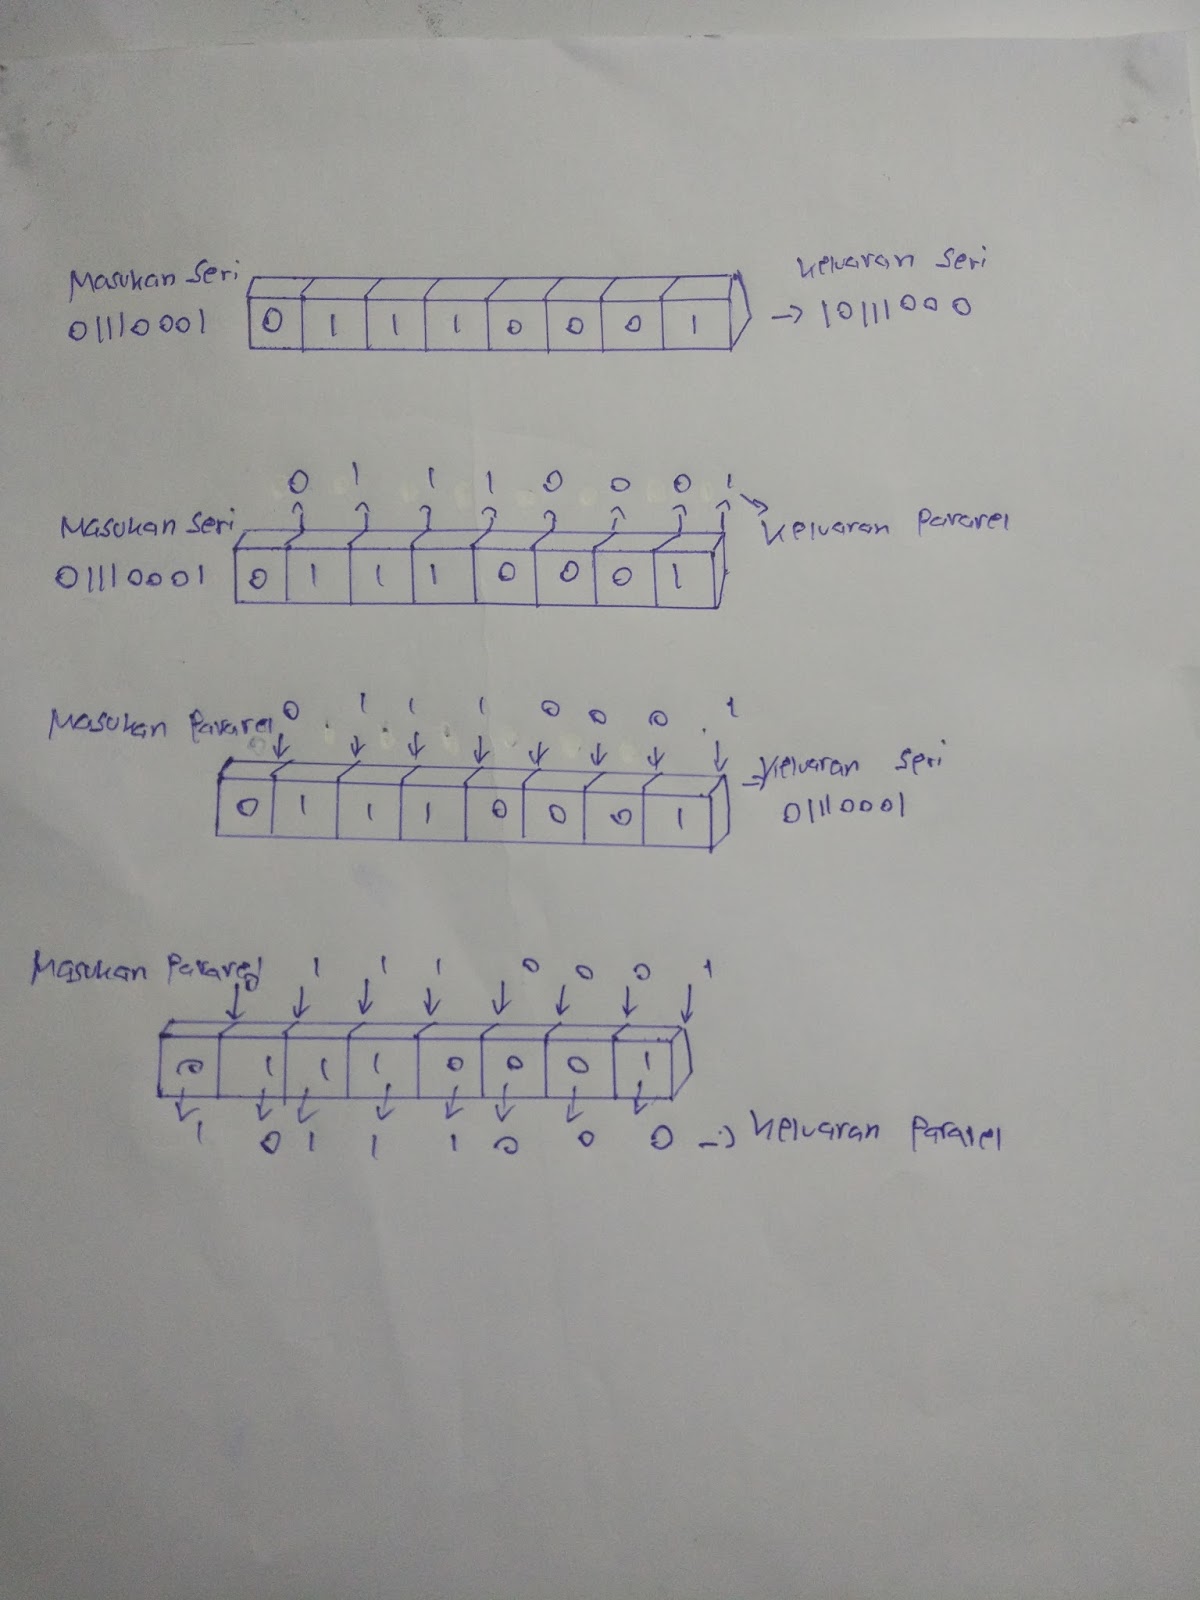 Masukan Seri
01110001
0 1 1 1 0 0 0 1
Keluaran Seri
→ 10111000
0 1 1 1 0 0 0 1
Masukan Seri
01110001
0 1 1 1 0 0 0 1
Keluaran Pararel
Masukan Pararel 0 1 1 1 0 0 0 1
0 1 1 1 0 0 0 1
Keluaran Seri
01110001
Masukan Pararel 0 1 1 1 0 0 0 1
0 1 1 1 0 0 0 1
1 0 1 1 1 0 0 0 → Keluaran Pararel